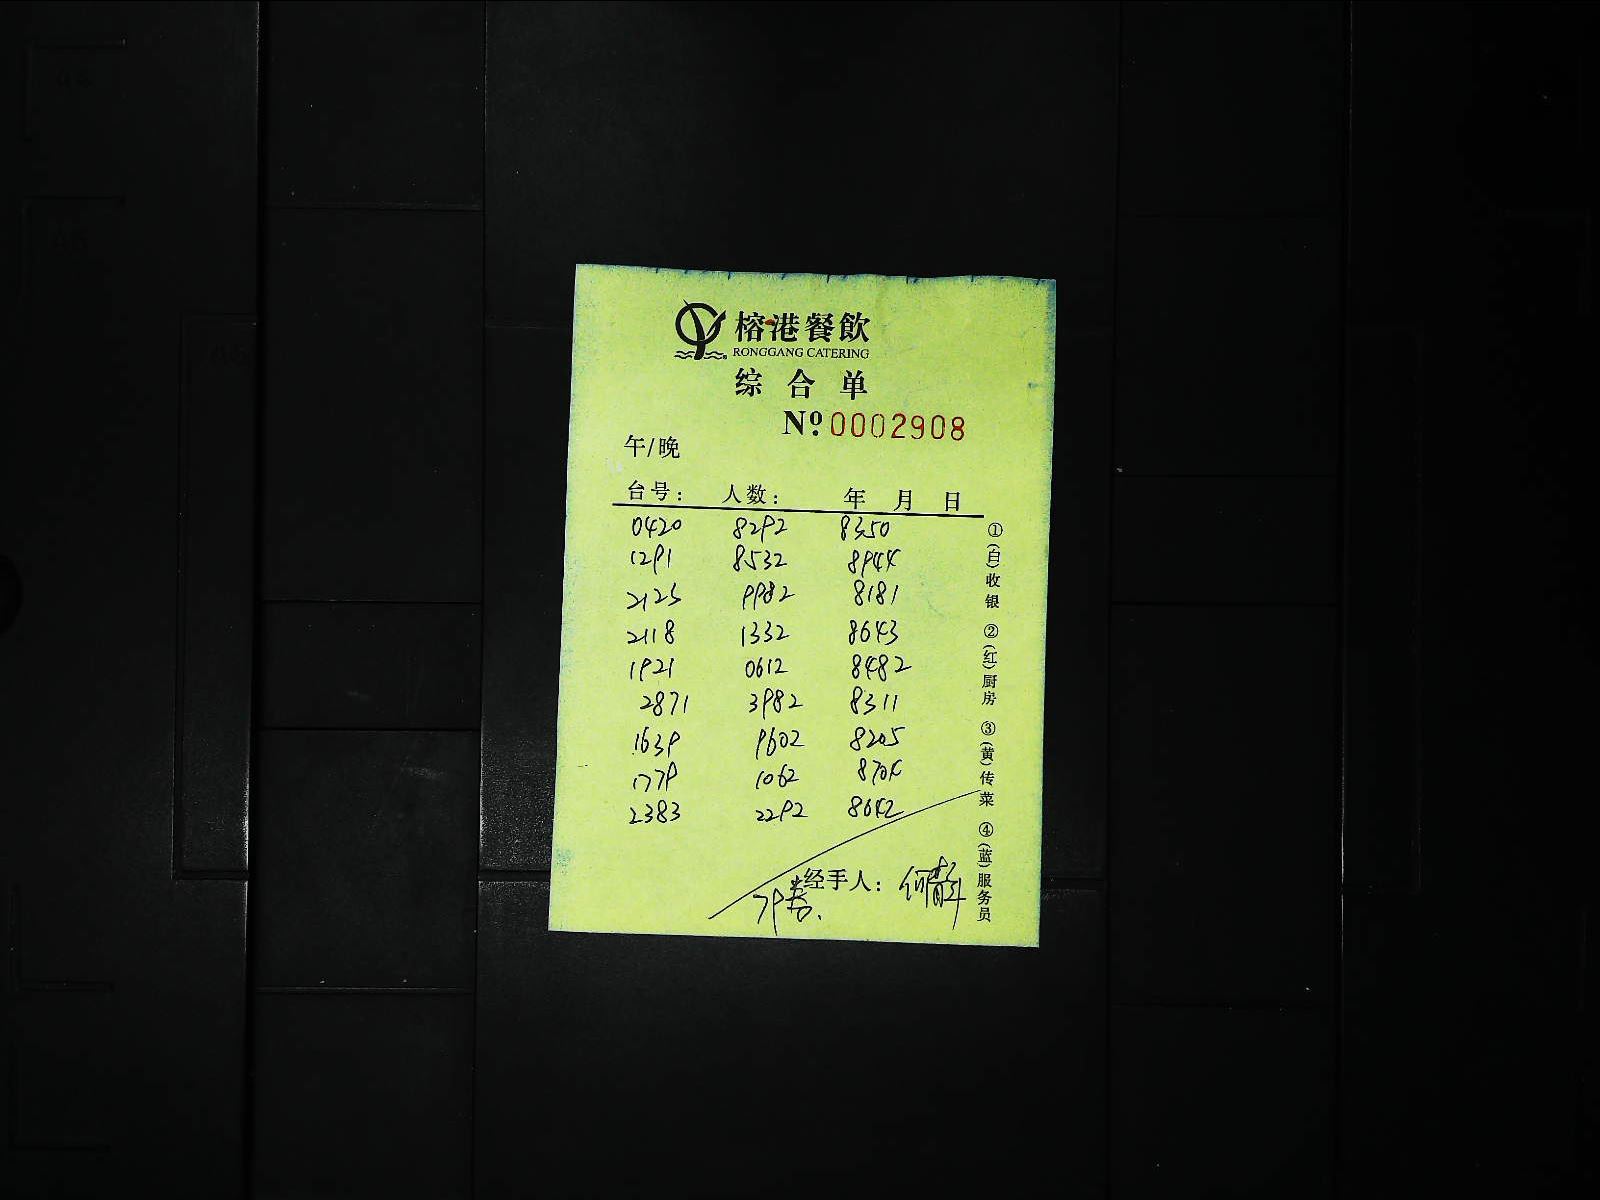 榕港餐飲
RONGGANG CATERING
综合单
Nº 0002908
午/晚
台号: 人数: 年 月 日
0420 8292 8350
1291 8532 8944
2125 9982 8181
2118 1332 8643
1921 0612 8482
2871 3982 8311
1639 9602 8205
1779 1062 8704
2383 2292 8642
经手人: 何静
①(白)收银 ②(红)厨房 ③(黄)传菜 ④(蓝)服务员